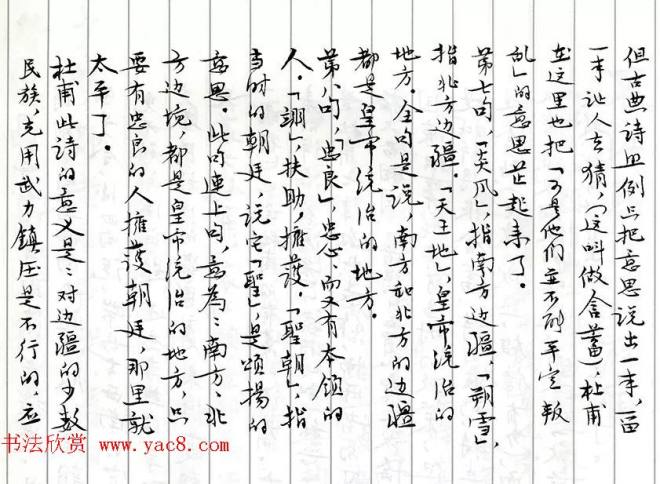 但古典詩里倒把意思说出一半,留
一半让人去猜,(这叫做含蓄),杜甫
在这里也把「可是他们並不能平定叛
乱」的意思起来了。
第七句,「炎风」,指南方边疆,「朔雪」,
指北方边疆。「天王地」,皇帝统治的
地方。全句是说,南方和北方的边疆
都是皇帝统治的地方。
第八句,「忠良」,忠心而又有本领的
人。「翊」,扶助,擁護。「聖朝」,指
当时的朝廷,说它「聖」,是颂揚的
意思。此句連上句,意為:南方、北
方边境,都是皇帝统治的地方,只
要有忠良的人擁護朝廷,那里就
太平了。
杜甫此詩的意义是:对边疆的少数
民族,光用武力鎮压是不行的,应
书法欣赏 www.yac8.com